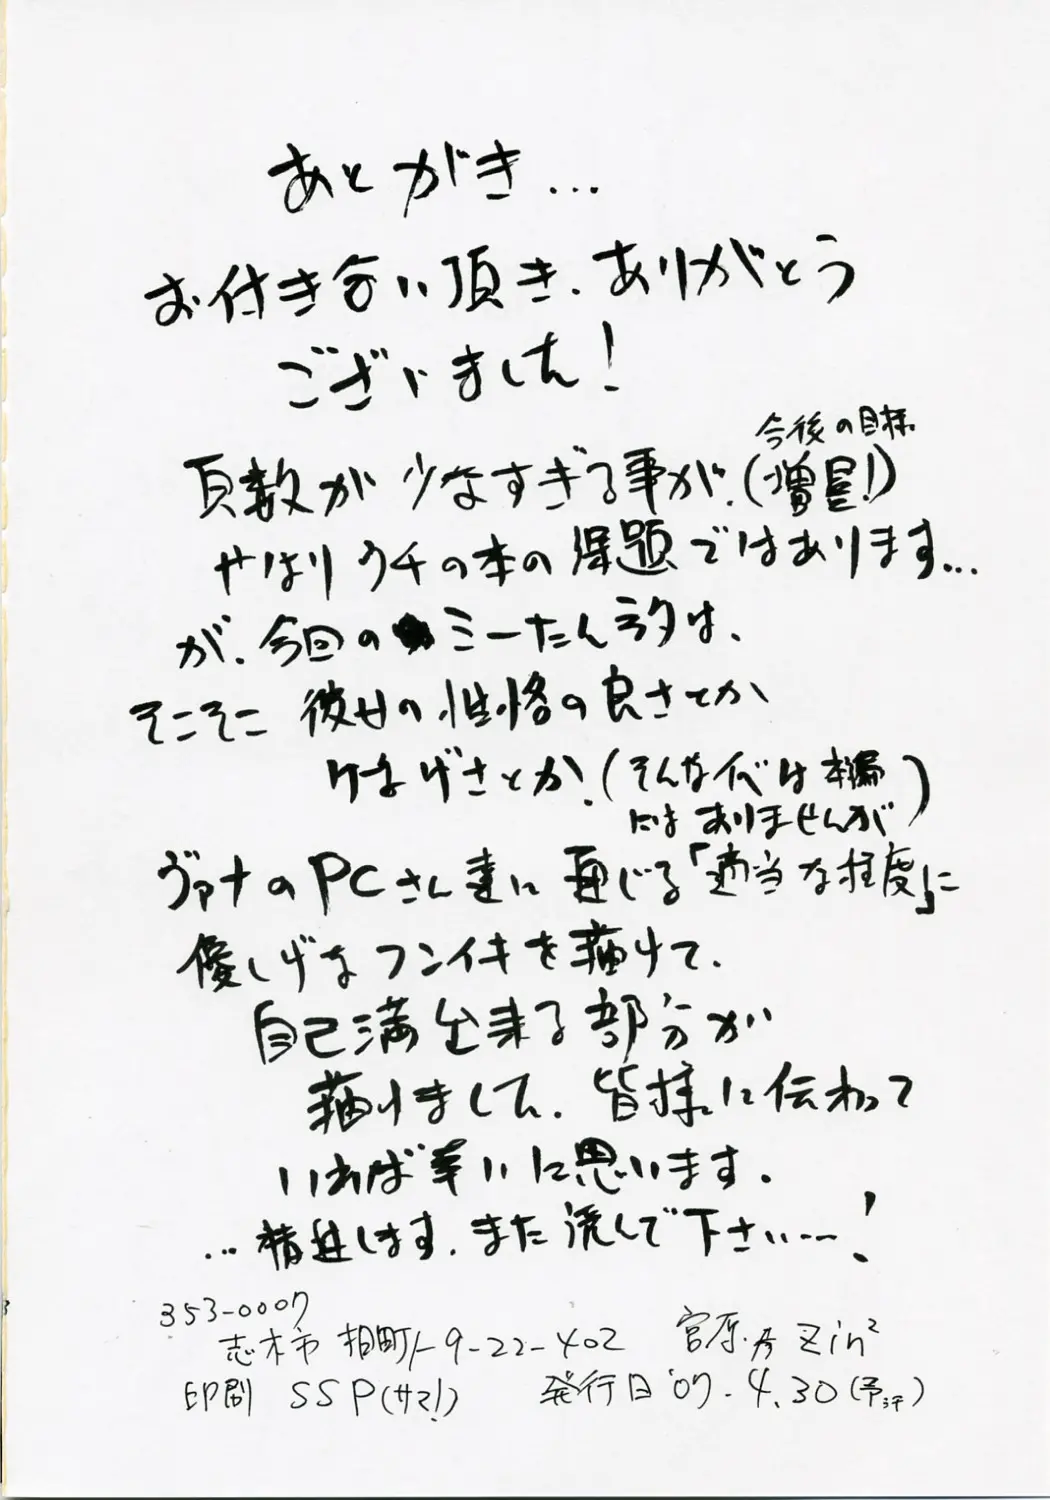 あとがき…
お付き合い頂き、ありがとう
ございました！
今後の目標
頁数が少なすぎる事が、(増量!)
やはりウチの本の課題ではあります…
が、今回のミーたんネタは、
そこそこ彼女の性格の良さとか
けなげさとか、(そんなイベは本編
にはありませんが)
ヴァナのPCさん達に通じる「適当な程度」に
優しげなフンイキを描けて、
自己満出来る部分が
描けました、皆様に伝わって
いれば幸いに思います。
…精進します、また読んで下さい……！
353-0007
志木市柏町1-9-22-402 宮原 Zin²
印刷 SSP(サマ!) 発行日'07.4.30(予定)